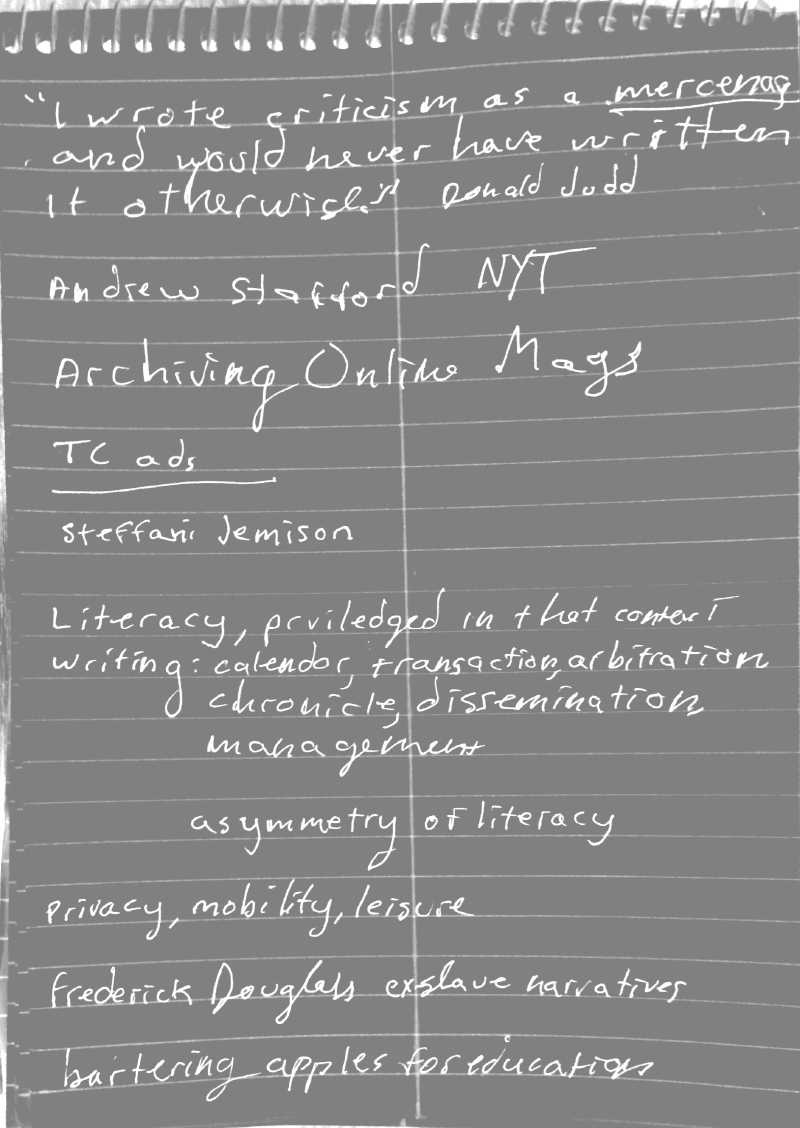 "I wrote criticism as a mercenary
and would never have written
it otherwise." Donald Judd
Andrew Stafford NYT
Archiving Online Mags
TC ads
Steffani Jemison
Literacy, priviledged in that context
writing: calendar, transaction, arbitration
chronicle, dissemination
management
asymmetry of literacy
privacy, mobility, leisure
Frederick Douglass exslave narratives
bartering apples for education